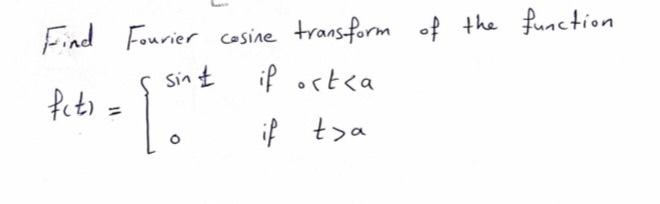 Find Fourier cosine transform of the function
f(t) = { sin t if 0<t<a
0 if t>a